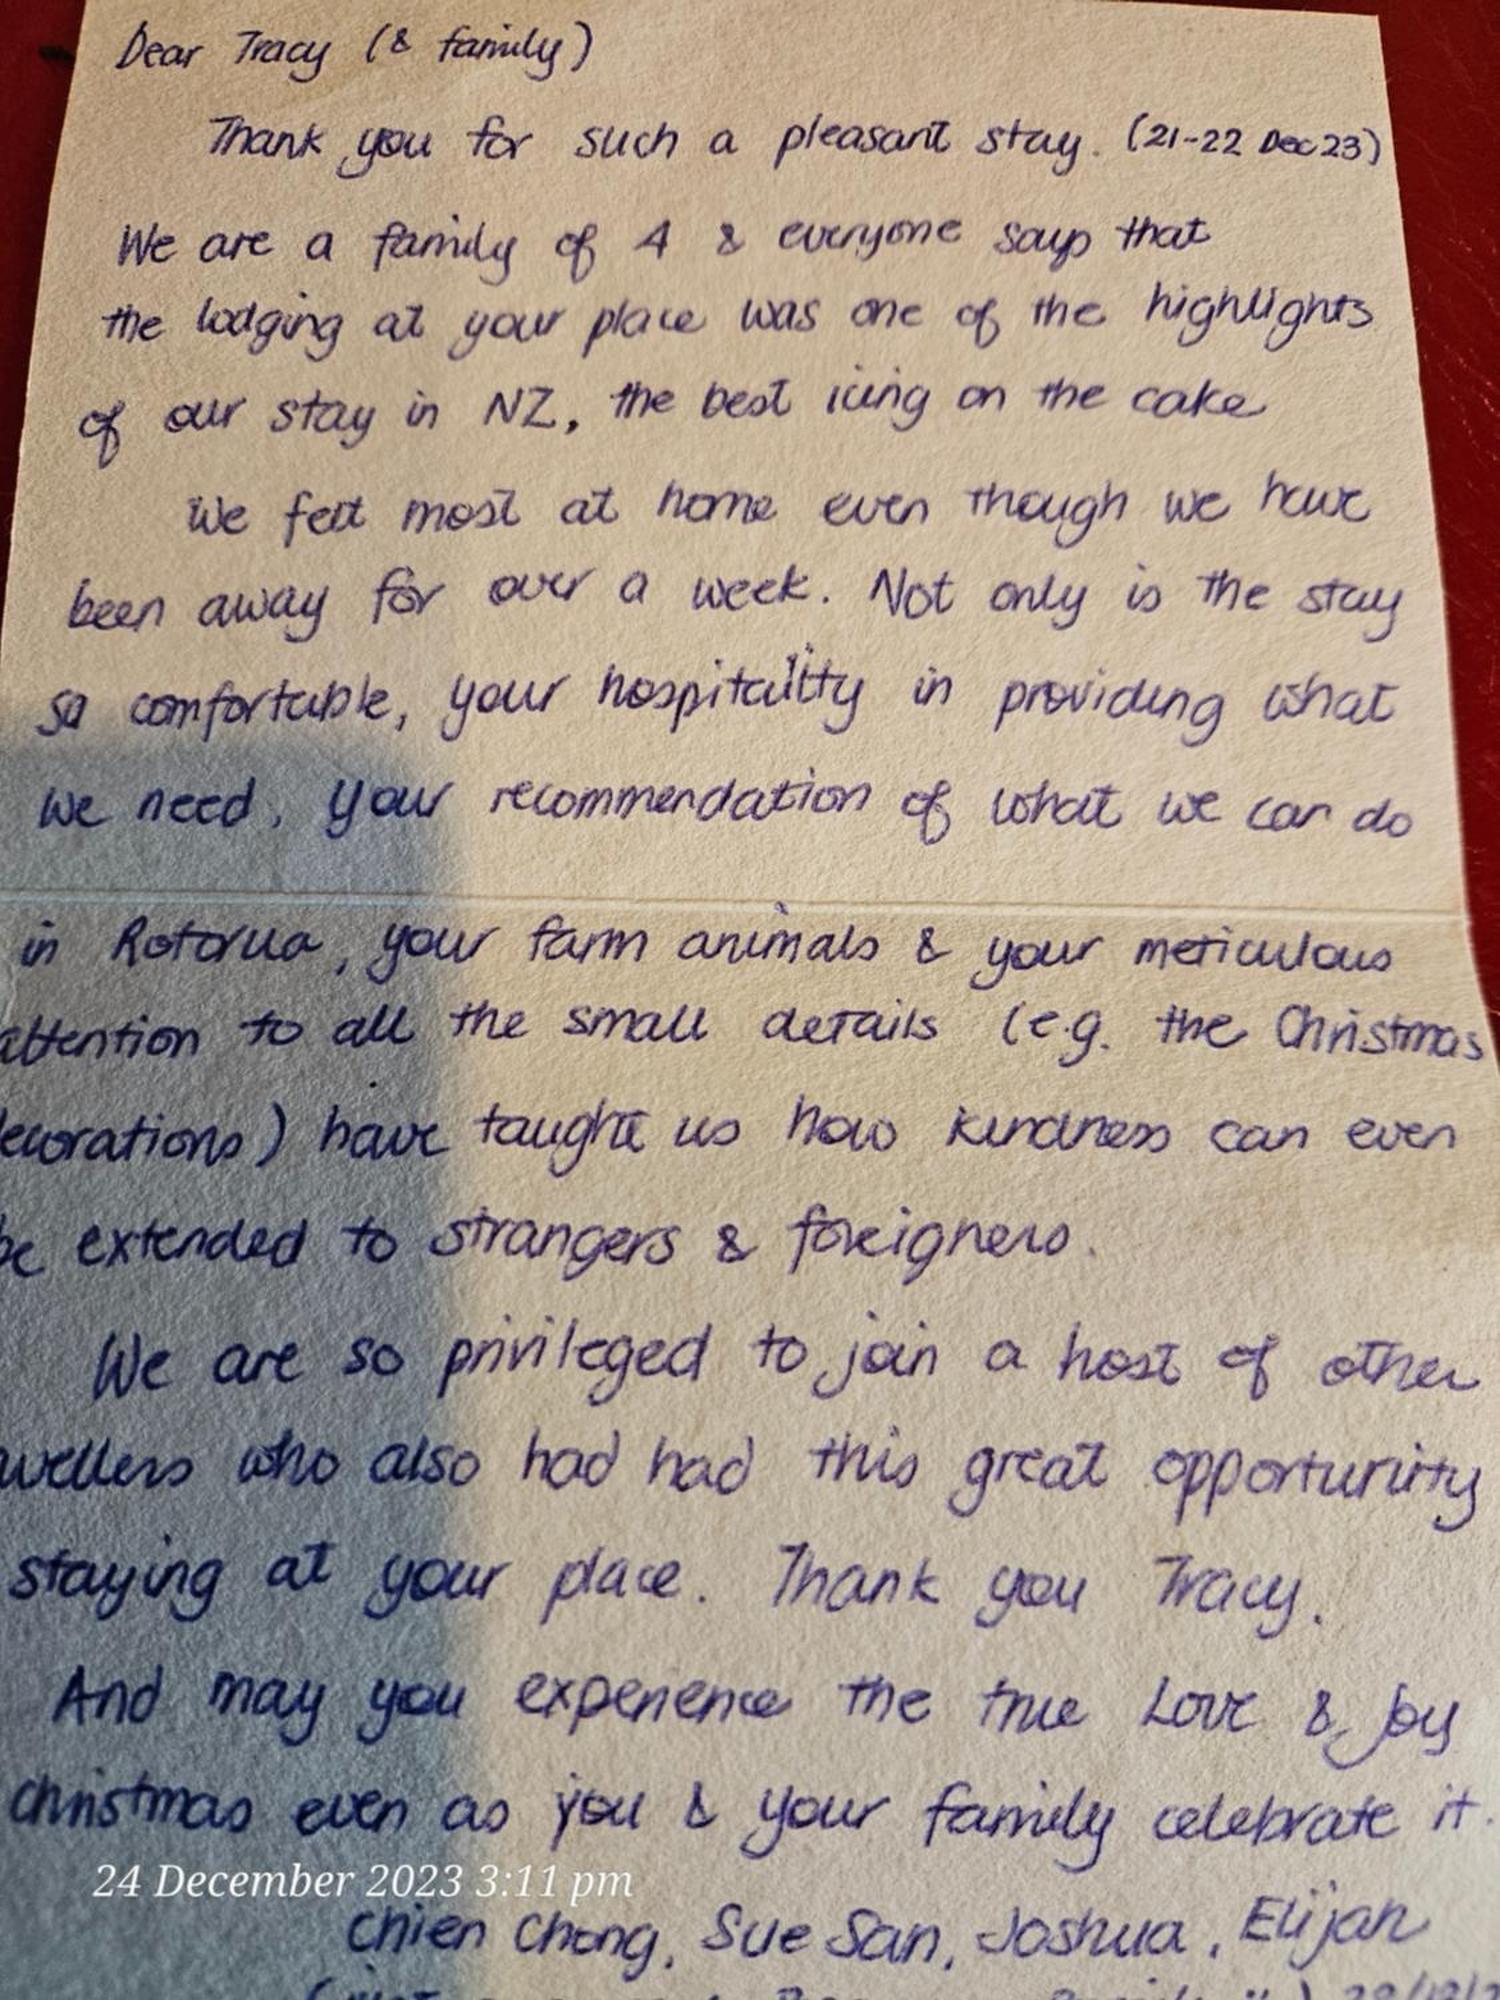 Dear Tracy (& family)
Thank you for such a pleasant stay. (21-22 Dec 23)
We are a family of 4 & everyone says that
the lodging at your place was one of the highlights
of our stay in NZ, the best icing on the cake
We felt most at home even though we have
been away for over a week. Not only is the stay
so comfortable, your hospitality in providing what
we need, your recommendation of what we can do
in Rotorua, your farm animals & your meticulous
attention to all the small details (e.g. the Christmas
ecorations) have taught us how kindness can even
be extended to strangers & foreigners.
We are so privileged to join a host of other
vellers who also had had this great opportunity
staying at your place. Thank you Tracy.
And may you experience the true Love & Joy
christmas even as you & your family celebrate it.
24 December 2023 3:11 pm
Chien Chong, Sue San, Joshua, Elijah